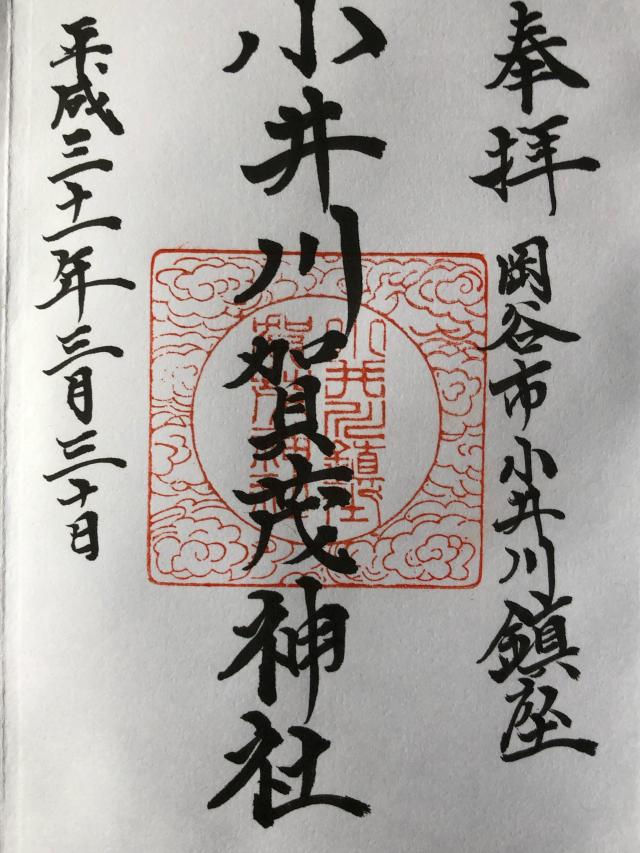 奉拝 岡谷市小井川鎮座
小井川賀茂神社
小井川鎮座
賀茂神社
平成三十一年三月三十日